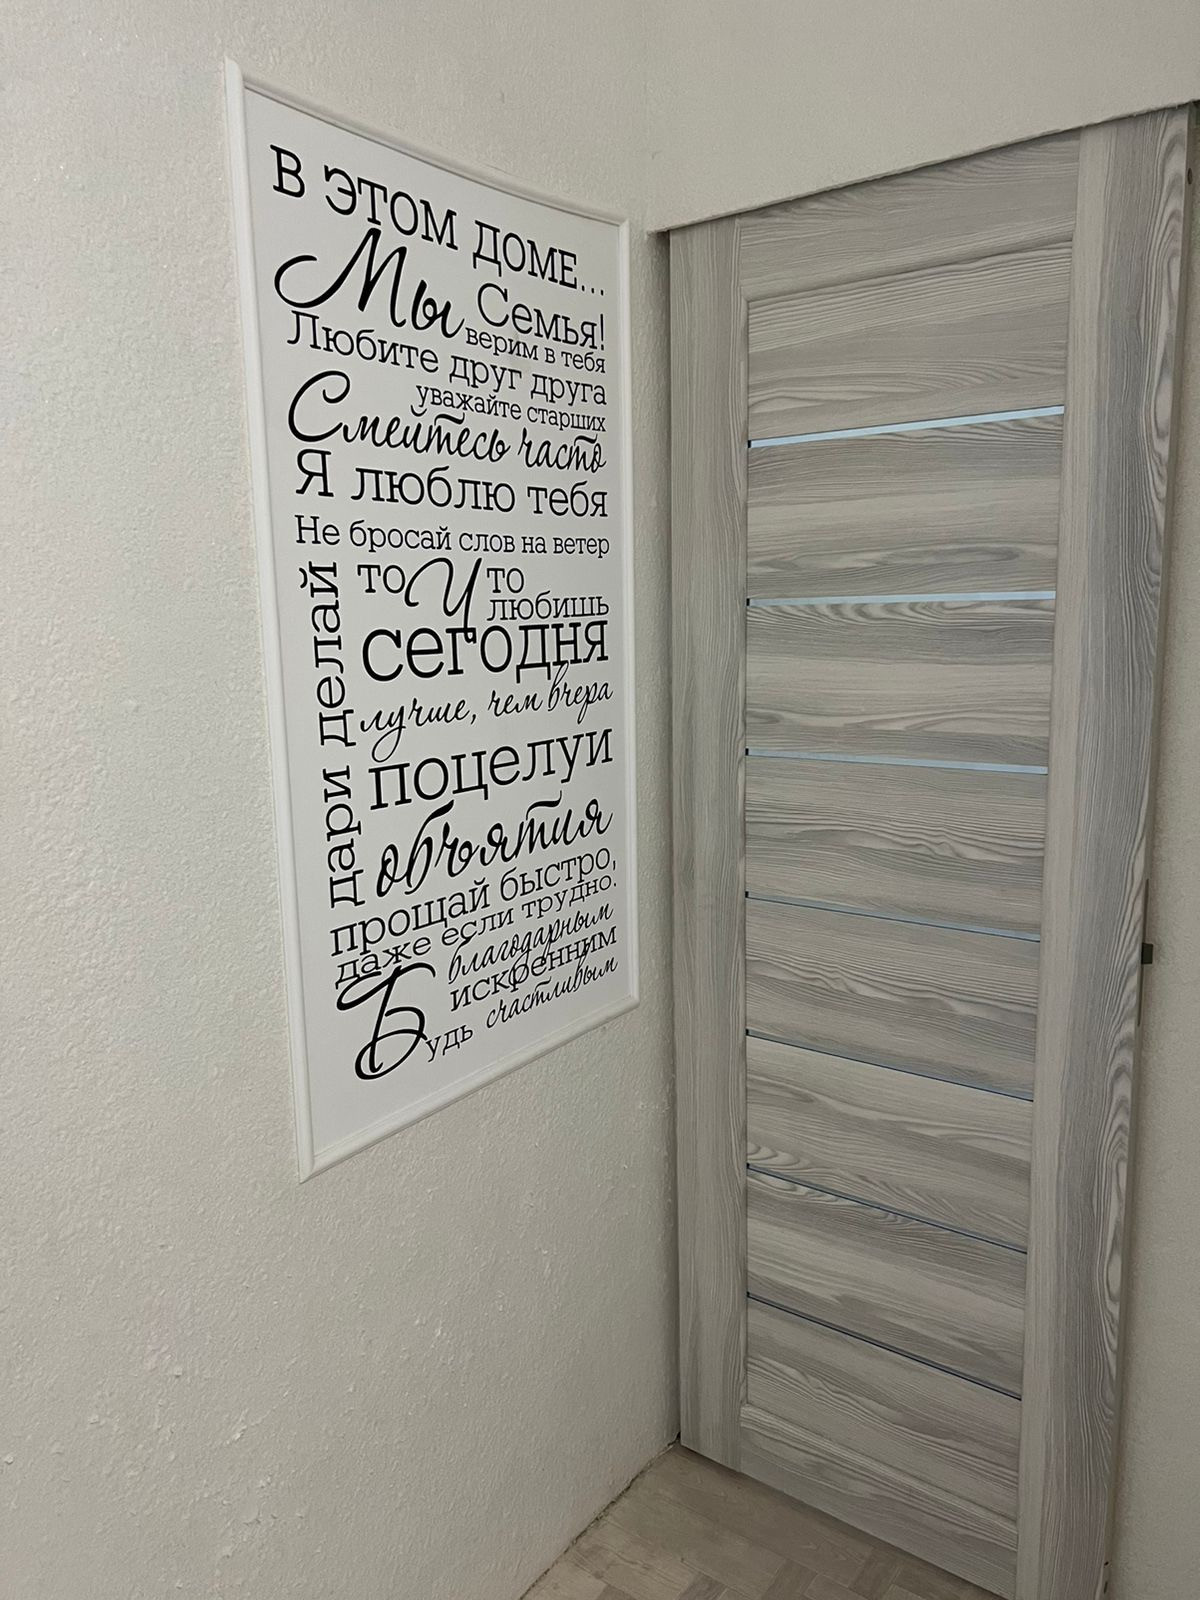 В ЭТОМ ДОМЕ...
Мы Семья!
верим в тебя
Любите друг друга
уважайте старших
Смейтесь часто
Я люблю тебя
Не бросай слов на ветер
делай то Что то
любишь
сегодня
лучше, чем вчера
дари поцелуи
объятия
прощай быстро,
даже если трудно.
Будь благодарным
искренним
счастливым